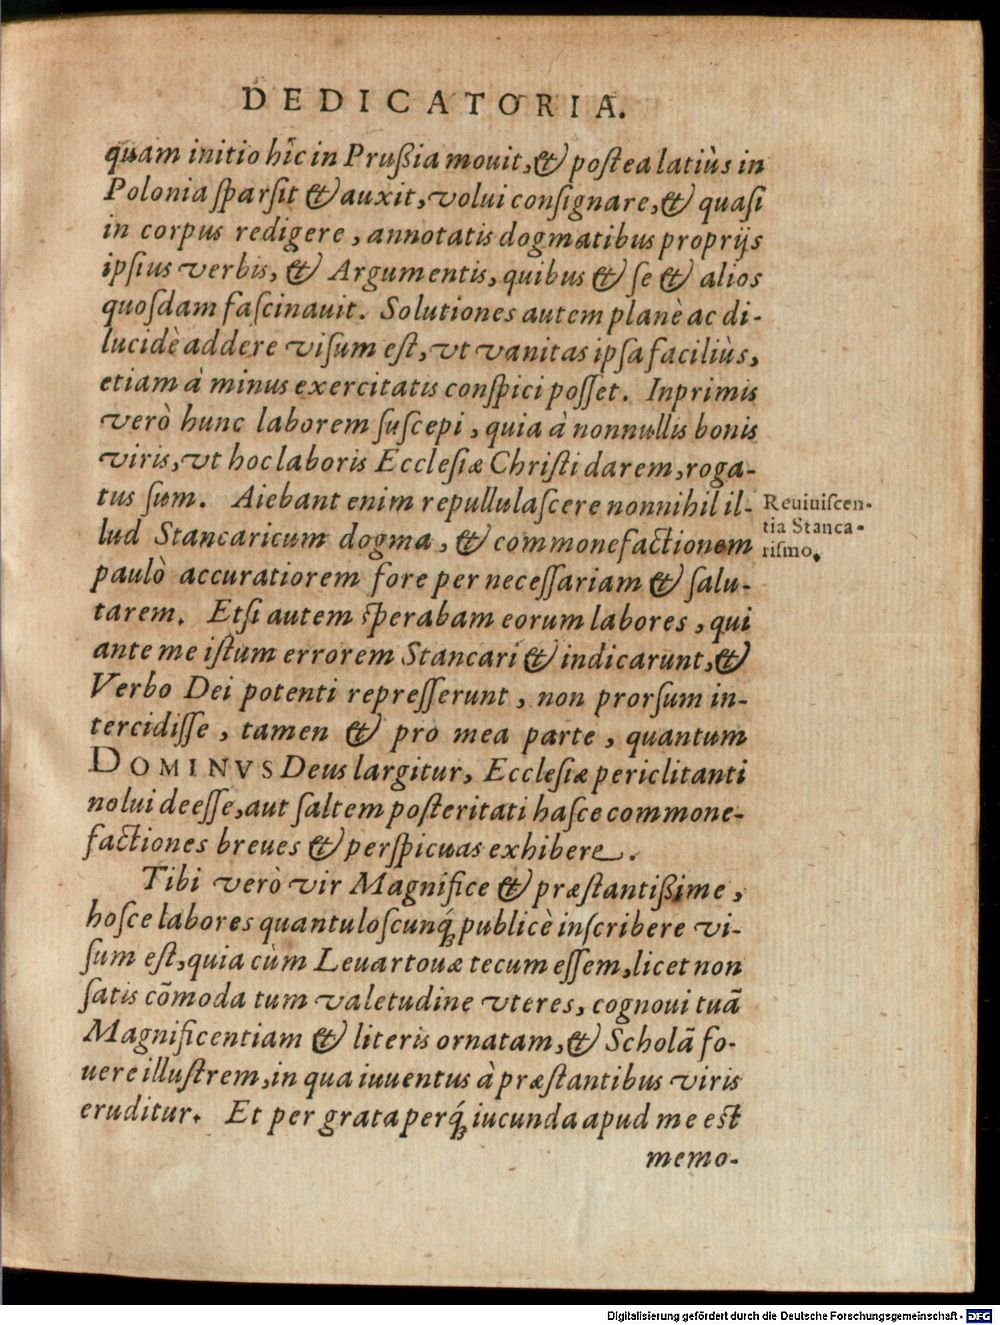 DEDICATORIA.
quam initio hîc in Prußia mouit, & postea latiùs in
Polonia sparsit & auxit, volui consignare, & quasi
in corpus redigere, annotatis dogmatibus proprijs
ipsius verbis, & Argumentis, quibus & se & alios
quosdam fascinauit. Solutiones autem planè ac di-
lucidè addere visum est, vt vanitas ipsa faciliùs,
etiam à minus exercitatis conspici posset. Inprimis
verò hunc laborem suscepi, quia à nonnullis bonis
viris, vt hoc laboris Ecclesiæ Christi darem, roga-
tus sum. Aiebant enim repullulascere nonnihil il-
lud Stancaricum dogma, & commonefactionem
paulò accuratiorem fore per necessariam & salu-
tarem. Etsi autem sperabam eorum labores, qui
ante me istum errorem Stancari & indicarunt, &
Verbo Dei potenti represserunt, non prorsum in-
tercidisse, tamen & pro mea parte, quantum
DOMINVS Deus largitur, Ecclesiæ periclitanti
nolui deesse, aut saltem posteritati hasce commone-
factiones breues & perspicuas exhibere.
Reuiuiscen-
tia Stanca-
rismo.
Tibi verò vir Magnifice & præstantißime,
hosce labores quantuloscunq́; publicè inscribere vi-
sum est, quia cùm Leuartouæ tecum essem, licet non
satis cōmoda tum valetudine vteres, cognoui tuā
Magnificentiam & literis ornatam, & Scholā fo-
uere illustrem, in qua iuuentus à præstantibus viris
eruditur. Et per grata perq́; iucunda apud me est
memo-
Digitalisierung gefördert durch die Deutsche Forschungsgemeinschaft - DFG